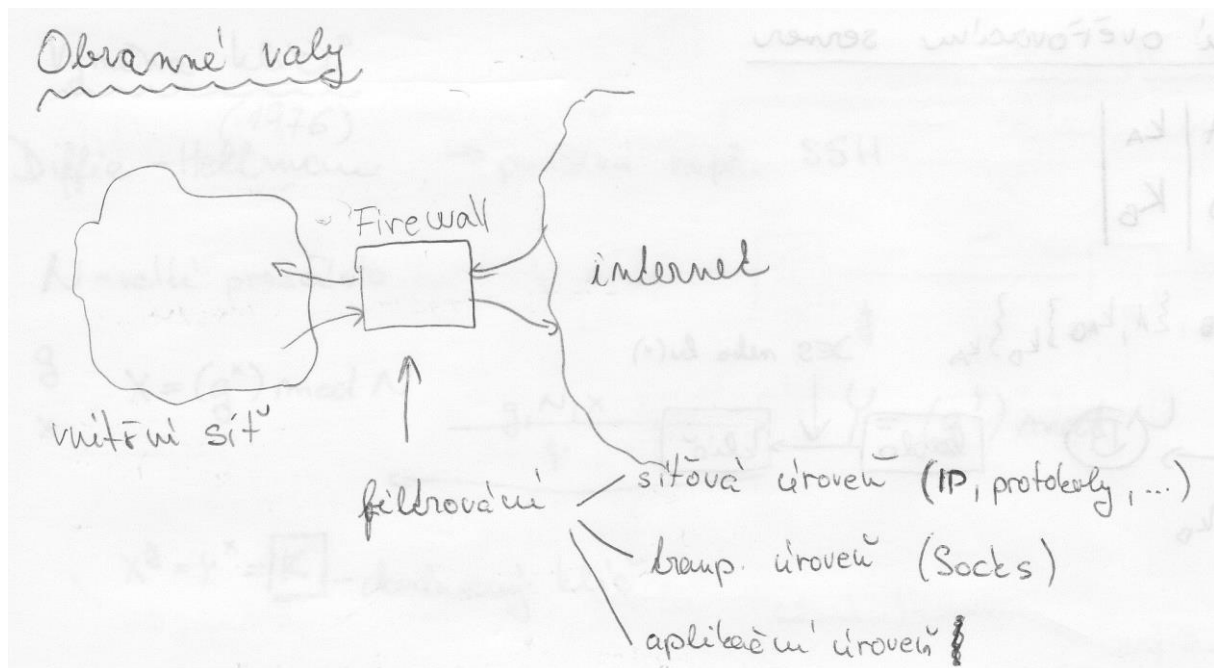 Obranné valy
Firewall
internet
vnitřní síť
filtrování
síťová úroveň (IP, protokoly, ...)
transp. úroveň (Socks)
aplikační úroveň